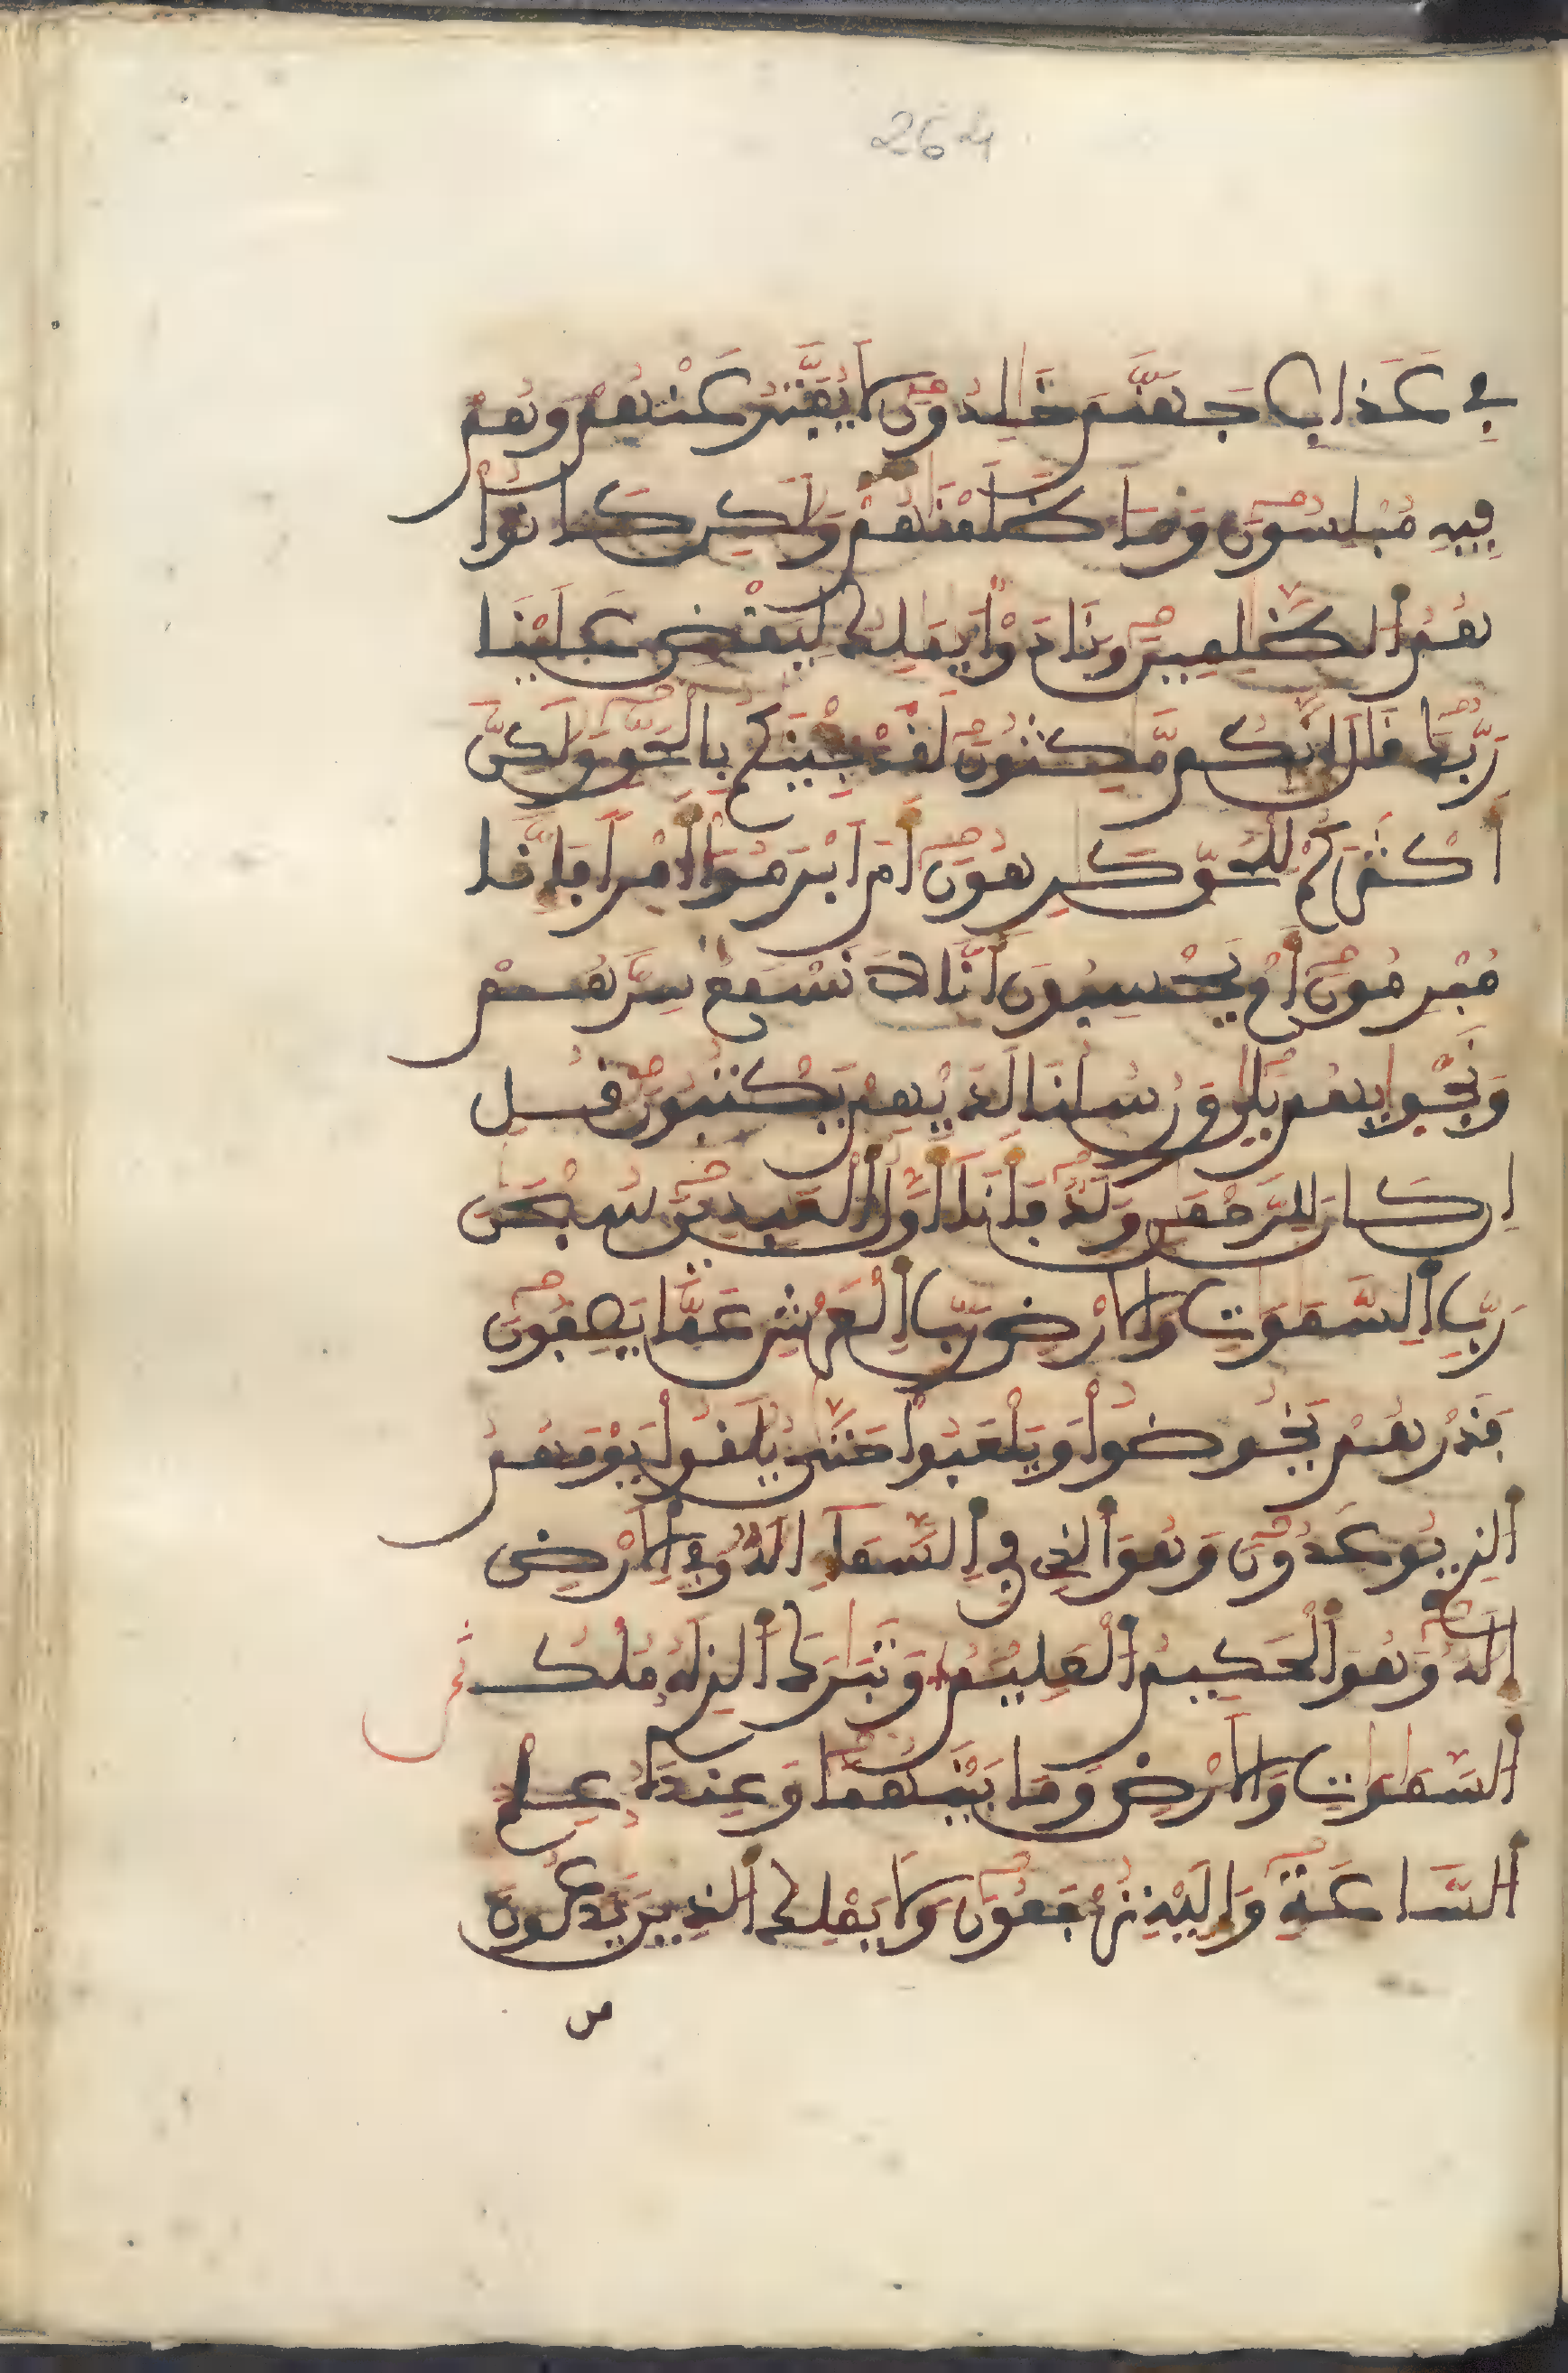 264
فِے عَذَابِ جَهَنَّمَ خَٰلِدُونَ لَا يُفَتَّرُ عَنْهُمْ وَهُمْ
فِيهِ مُبْلِسُونَ وَمَا ظَلَمْنَٰهُمْ وَلَٰكِن كَانُواْ
هُمُ الظَّٰلِمِينَ وَنَادَوْاْ يَٰمَٰلِكُ لِيَقْضِ عَلَيْنَا
رَبُّكَ قَالَ إِنَّكُم مَّٰكِثُونَ لَقَدْ جِئْنَٰكُم بِالْحَقِّ وَلَٰكِنَّ
أَكْثَرَكُمْ لِلْحَقِّ كَٰرِهُونَ أَمَ ابْرَمُواْ أَمْراً فَإِنَّا
مُبْرِمُونَ أَمْ يَحْسِبُونَ أَنَّا لَا نَسْمَعُ سِرَّهُمْ
وَنَجْوَيٰهُم بَلَىٰ وَرُسُلُنَا لَدَيْهِمْ يَكْتُبُونَ قُلِ
اِن كَانَ لِلرَّحْمَٰنِ وَلَدٌ فَأَنَا أَوَّلُ الْعَٰبِدِينَ سُبْحَٰنَ
رَبِّ السَّمَٰوَٰتِ وَالَارْضِ رَبِّ الْعَرْشِ عَمَّا يَصِفُونَ
فَذَرْهُمْ يَخُوضُواْ وَيَلْعَبُواْ حَتَّىٰ يُلَٰقُواْ يَوْمَهُمُ
الذِے يُوعَدُونَ وَهُوَ الذِے فِے السَّمَآءِ الَٰهٌ وَفِے الَارْضِ
إِلَٰهٌ وَهُوَ الْحَكِيمُ الْعَلِيمُ وَتَبَٰرَكَ الذِے لَهُۥ مُلْكُ
السَّمَٰوَٰتِ وَالَارْضِ وَمَا بَيْنَهُمَا وَعِندَهُۥ عِلْمُ
السَّاعَةِ وَإِلَيْهِ تُرْجَعُونَ وَلَا يَمْلِكُ الذِينَ يَدْعُونَ
من